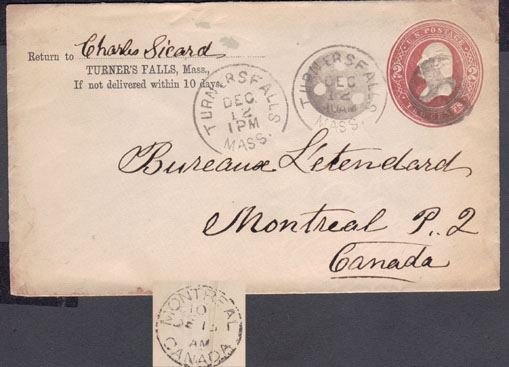 Return to Charles Sicard
TURNER'S FALLS, Mass.,
If not delivered within 10 days.
TURNERS FALLS
DEC
12
1PM
MASS.
TURNERS FALLS
DEC
12
10AM
MASS.
U.S. POSTAGE
Bureaux L'etendard
Montreal P. 2
Canada
MONTREAL
10
AM
CANADA